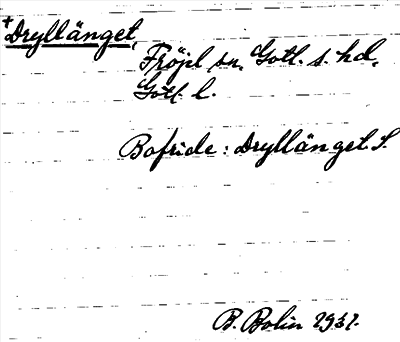 +Dryllänget,
Fröjel sn, Gotl. s. hd,
Gotl. l.
Bofride: Dryllänget S.
B. Bolin